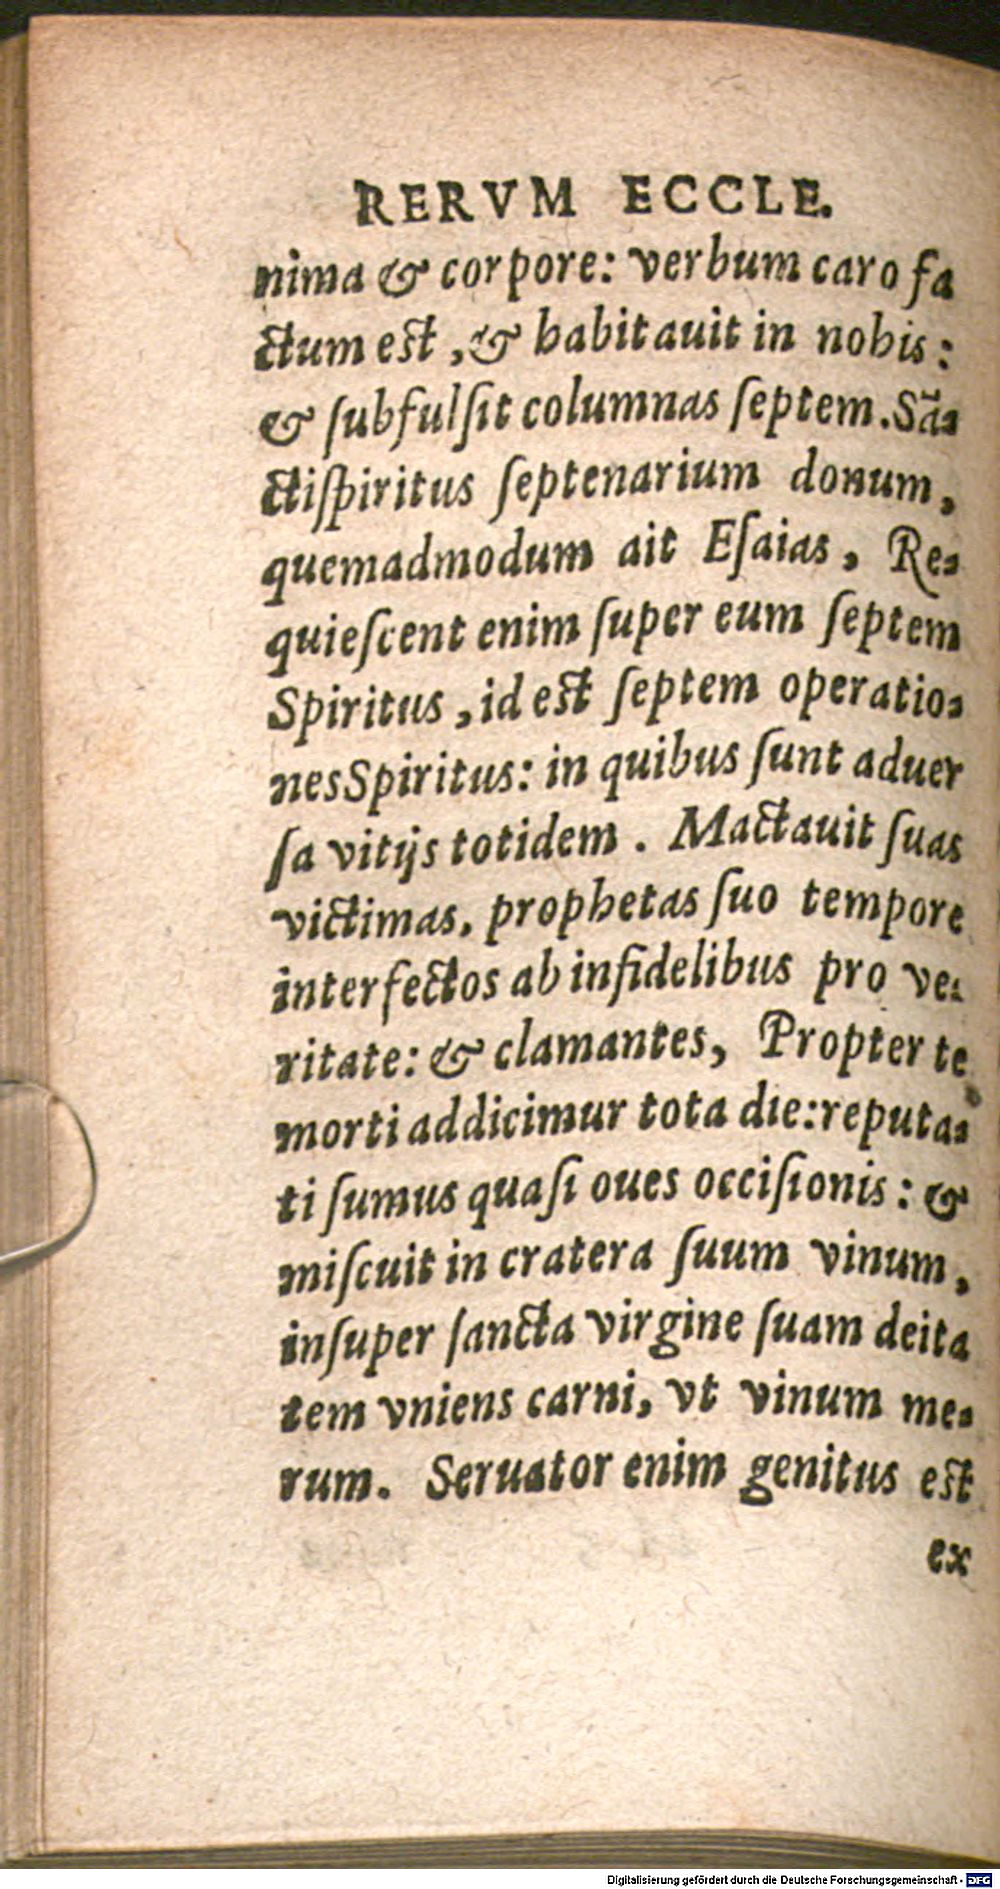 RERVM ECCLE.
nima & corpore: verbum caro fa
ctum est, & habitauit in nobis:
& ſubfulſit columnas ſeptem. Sã-
ctiſpiritus ſeptenarium donum,
quemadmodum ait Eſaias, Re-
quieſcent enim ſuper eum ſeptem
Spiritus, id est ſeptem operatio-
nesSpiritus: in quibus ſunt aduer
ſa vitijs totidem. Mactauit ſuas
victimas, prophetas ſuo tempore
interfectos ab infidelibus pro ve-
ritate: & clamantes, Propter te
morti addicimur tota die: reputa-
ti ſumus quaſi oues occiſionis: &
miſcuit in cratera ſuum vinum,
inſuper ſancta virgine ſuam deita
tem vniens carni, vt vinum me-
rum. Seruator enim genitus est
ex
Digitalisierung gefördert durch die Deutsche Forschungsgemeinschaft - DFG